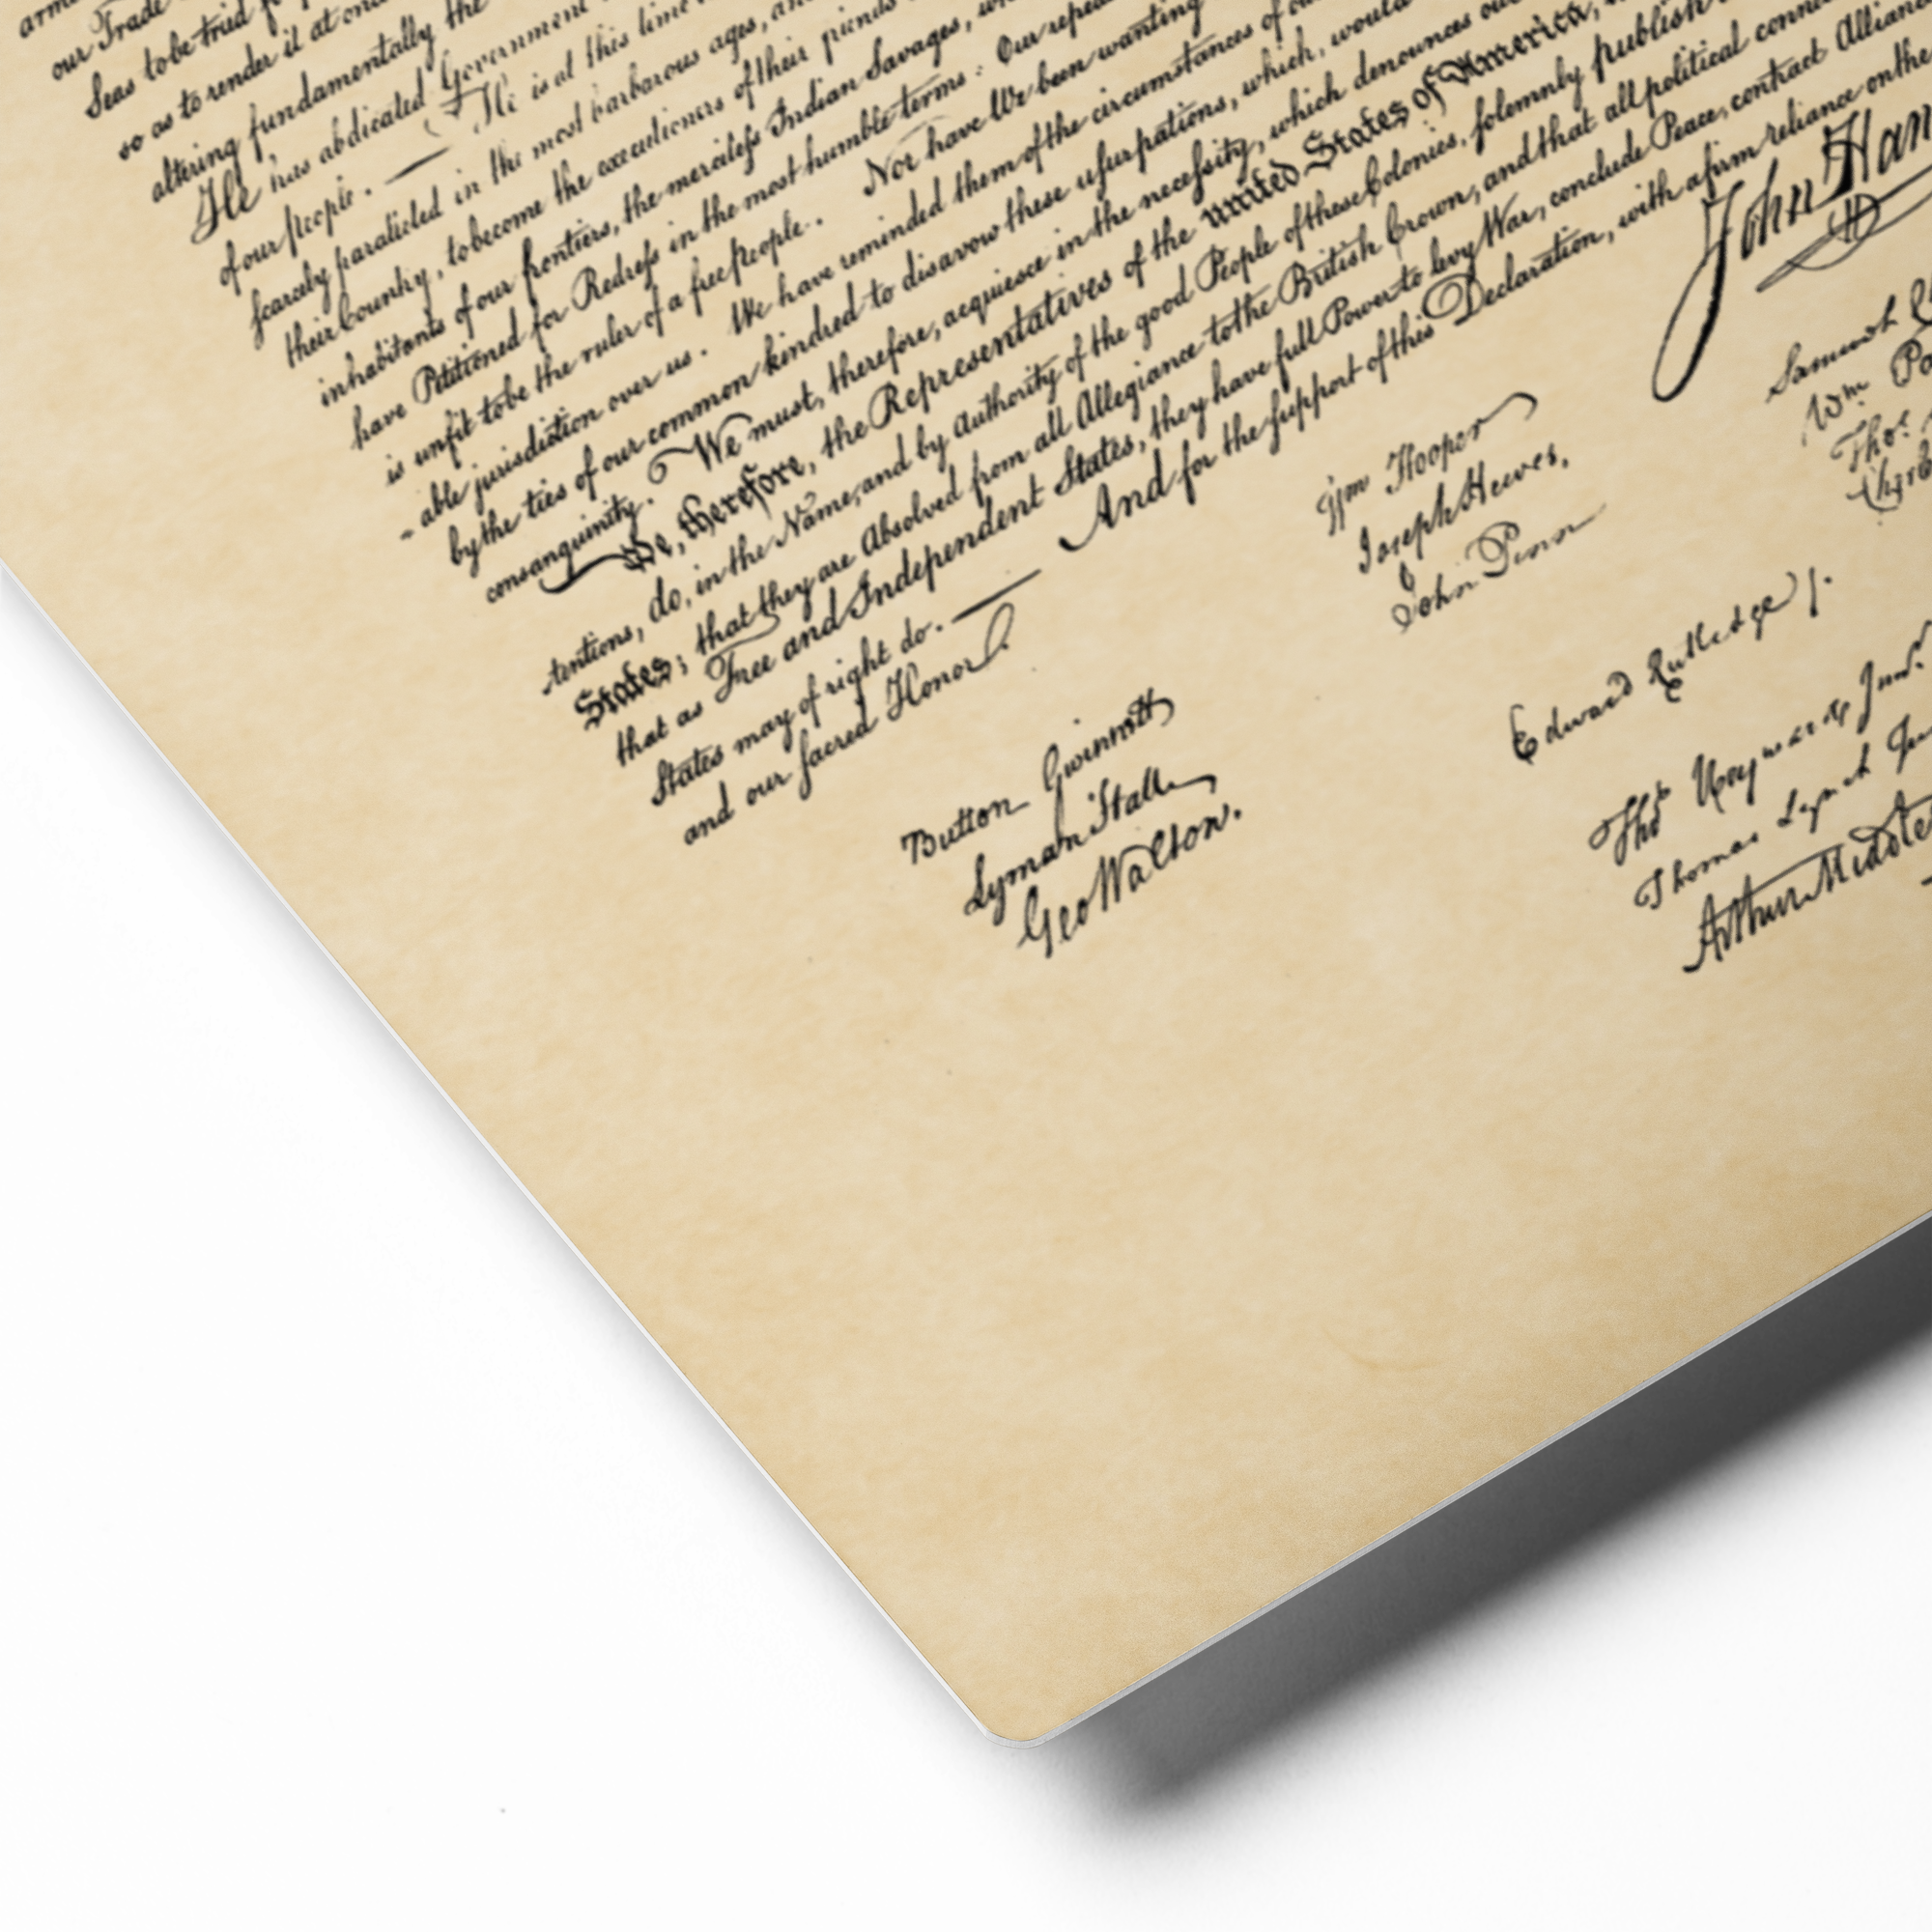 our Trade
Seas to be tried
so as to render it at
altering fundamentally the
He has abdicated Government
of our people. — He is at this time
scarcely paralleled in the most barbarous ages,
their Country, to become the executioners of their friends
inhabitants of our frontiers, the merciless Indian Savages,
have Petitioned for Redress in the most humble terms: Our
is unfit to be the ruler of a free people. Nor have We been wanting
- able jurisdiction over us. We have reminded them of the circumstances of
by the ties of our common kindred to disavow these usurpations, which, would
consanguinity. We must, therefore, acquiesce in the necessity, which denounces
We, therefore, the Representatives of the united States of America,
tentions, do, in the Name, and by Authority of the good People of these Colonies, solemnly publish
States; that they are Absolved from all Allegiance to the British Crown, and that all political
that as Free and Independent States, they have full Power to levy War, conclude Peace, contract
States may of right do. — And for the support of this Declaration, with a firm reliance on the
and our sacred Honor.
John Han
Button Gwinnett
Lyman Hall
Geo Walton.
Wm Hooper
Joseph Hewes,
John Penn
Edward Rutledge /.
Thos Heyward Junr.
Thomas Lynch
Arthur Middle
Samuel
Wm
Thos.